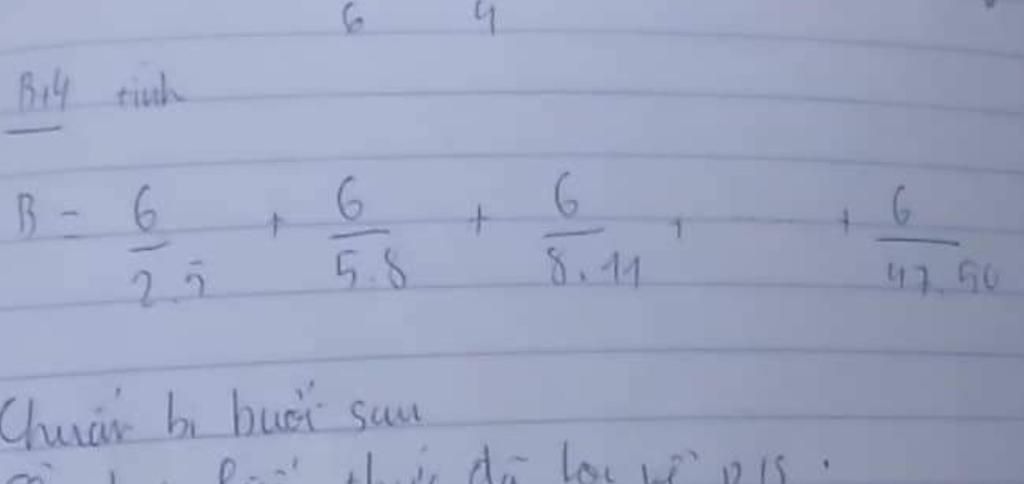 6 4
B,4 tính
B = 6/2.5 + 6/5.8 + 6/8.11 + + 6/47.50
Chuẩn bị buổi sau